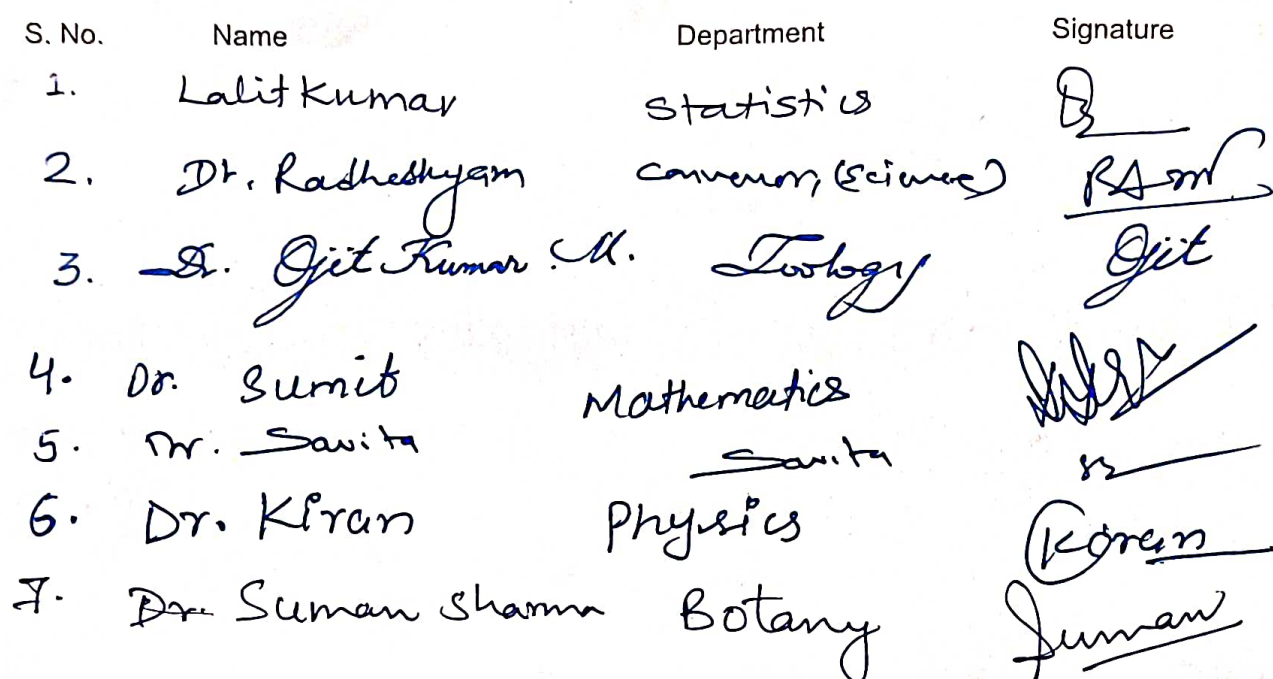 S. No. Name Department Signature
1. Lalit Kumar Statistics
2. Dr. Radheshyam Convenor, (Science)
3. Dr. Ojit Kumar M. Zoology Ojit
4. Dr. Sumit Mathematics
5. Dr. Savita Savita
6. Dr. Kiran Physics Kiran
7. Dr. Suman Sharma Botany Suman